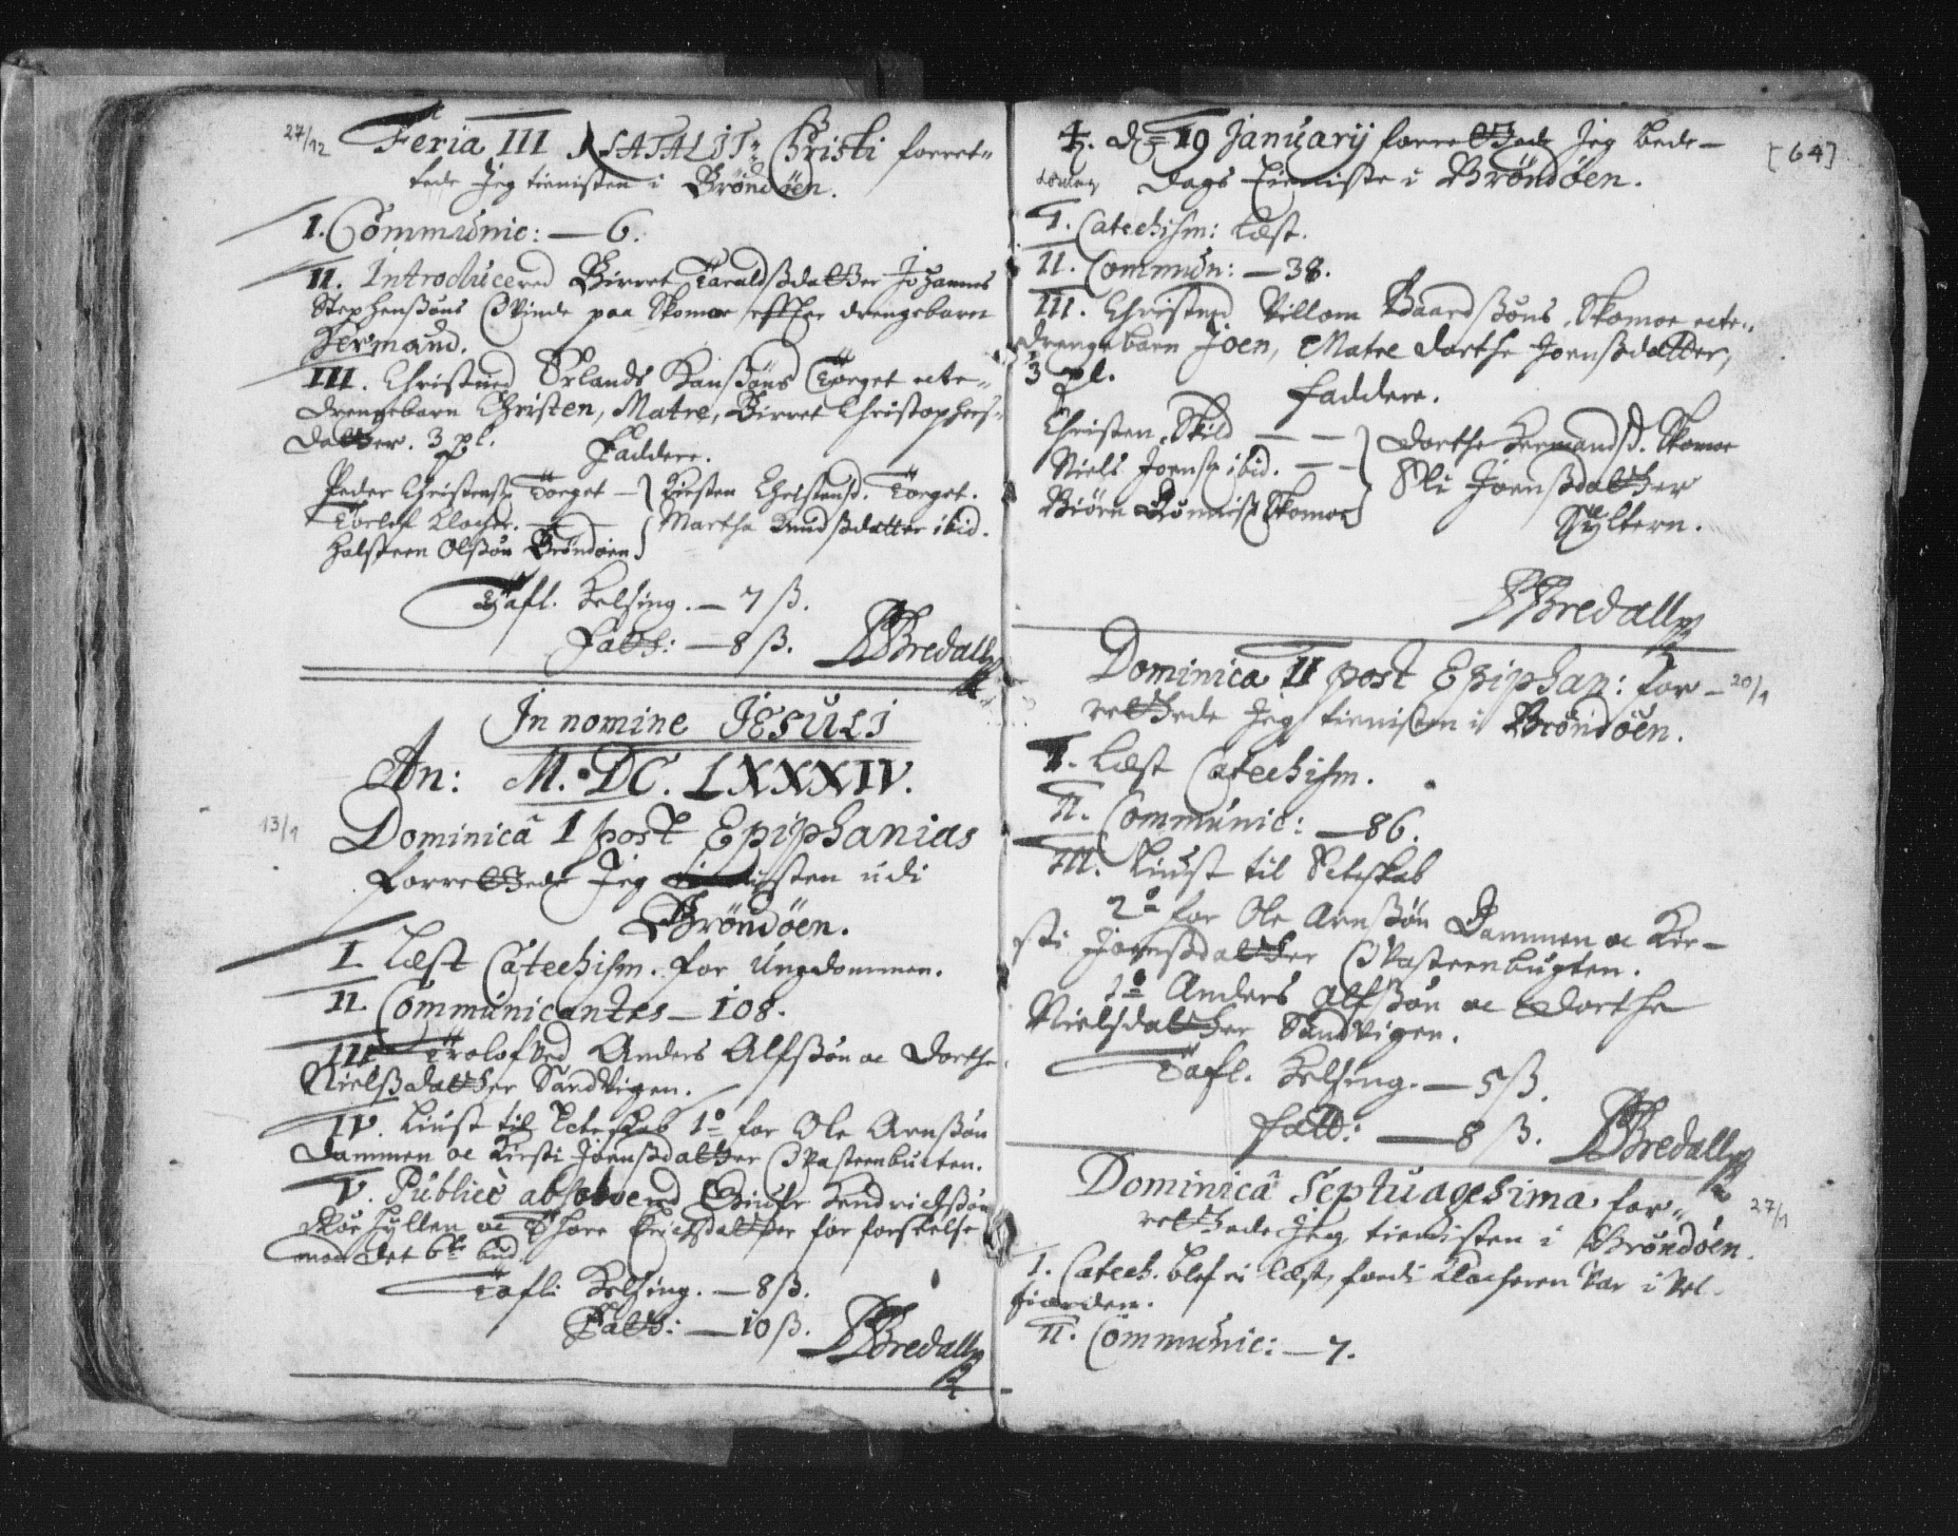 27/12 Feria III NATALIT: Christi forret-
tede Jeg tienisten i Bröndöen.
I. Communic: — 6.
II. Introducered Birret Haraldsdatter Johannes
Stephensøns Qvinde paa Skomoe effter drengebarn
Hermand.
III. Christned Erlands Hansøns Torget ecte-
drengebarn Christen, Matre, Birret Christophers-
datter. 3 pl.
Faddere.
Peder Christens: Torget — Kirsten Christensd. Torget.
Torlef Klocher. — Martha Knudsdatter ibid.
Halsteen Olsøn Bröndöen
Tafl. Helsing. — 7 ß.
Fatt: — 8 ß. Bredall
In nomine JESULI
An: M.DC.LXXXIV.
13/1 Dominicâ I post Epiphanias
forrettede Jeg tienisten udi
Bröndöen.
I. Læst Catechism. for Ungdommen.
II. Communicantes — 108.
III. Trolofved Anders Alfsøn oc Dorthe
Nielsdatter Sandvigen.
IV. Liust til Ecteskab 1º for Ole Arnsøn
Dammen oc Kirsti Joensdatter Qvasteenbucten.
V. Publicè absolvered Hendrichsøn
oc Thore Erichsdatter for forseelse
mod det 6te bud.
Tafl: Helsing. — 8 ß.
Fatt: — 10 ß. Bredall
[64]
d= 19 Januarij forrettede Jeg Bede-
dags tieniste i Bröndöen.
I. Catechism: Læst.
II. Commun: — 38.
III. Christned Villom Baardsøns, Skomoe ecte-
drengebarn Joen, Matre Dorthe Joensdatter,
3 pl.
Faddere.
Christen Skild — — Dorthe Hermandsd. Skomoe
Niels Joens: ibid. — — Eli Joensdatter
Biörn Skomoe Syltern.
Bredall
Dominica II post Epiphan: for- 20/1
rettede Jeg tienisten i Bröndöen.
I. Læst Catechism.
II. Communic: — 86.
III. Liust til Ecteskab
2º for Ole Arnsøn Dammen oc Kir-
sti Joensdatter Qvasteenbugten.
1º Anders Alfsøn oc Dorthe
Nielsdatter Sandvigen.
Tafl. Helsing. — 5 ß.
Fatt: — 8 ß. Bredall
Dominicâ Septuagesima for- 27/1
rettede Jeg tienisten i Bröndöen.
I. Catech. blef ei læst, fordi Klocheren var i Vel-
fiorden.
II. Communic: — 7.